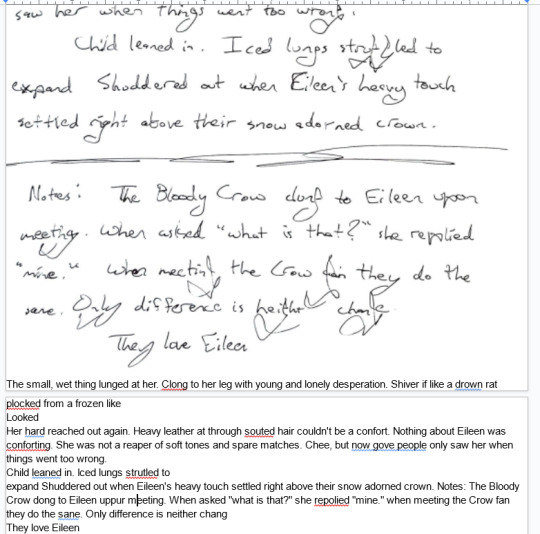 saw her when things went too wrong.
Child leaned in. Iced lungs struggled to
expand Shuddered out when Eileen's heavy touch
settled right above their snow adorned crown.
Notes: The Bloody Crow clung to Eileen upon
meeting. When asked "what is that?" she repolied
"mine." When meeting the Crow fan they do the
same. Only difference is height change.
They love Eileen
The small, wet thing lunged at her. Clong to her leg with young and lonely desperation. Shiver if like a drown rat
plocked from a frozen like
Looked
Her hard reached out again. Heavy leather at through souted hair couldn't be a confort. Nothing about Eileen was
conforting. She was not a reaper of soft tones and spare matches. Chee, but now gove people only saw her when
things went too wrong.
Child leaned in. Iced lungs strutled to
expand Shuddered out when Eileen's heavy touch settled right above their snow adorned crown. Notes: The Bloody
Crow dong to Eileen uppur meeting. When asked "what is that?" she repolied "mine." when meeting the Crow fan
they do the sane. Only difference is neither chang
They love Eileen